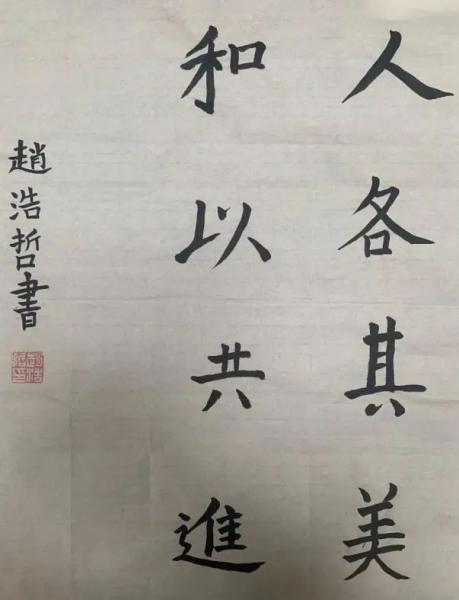 人各其美
和以共進
趙浩哲書